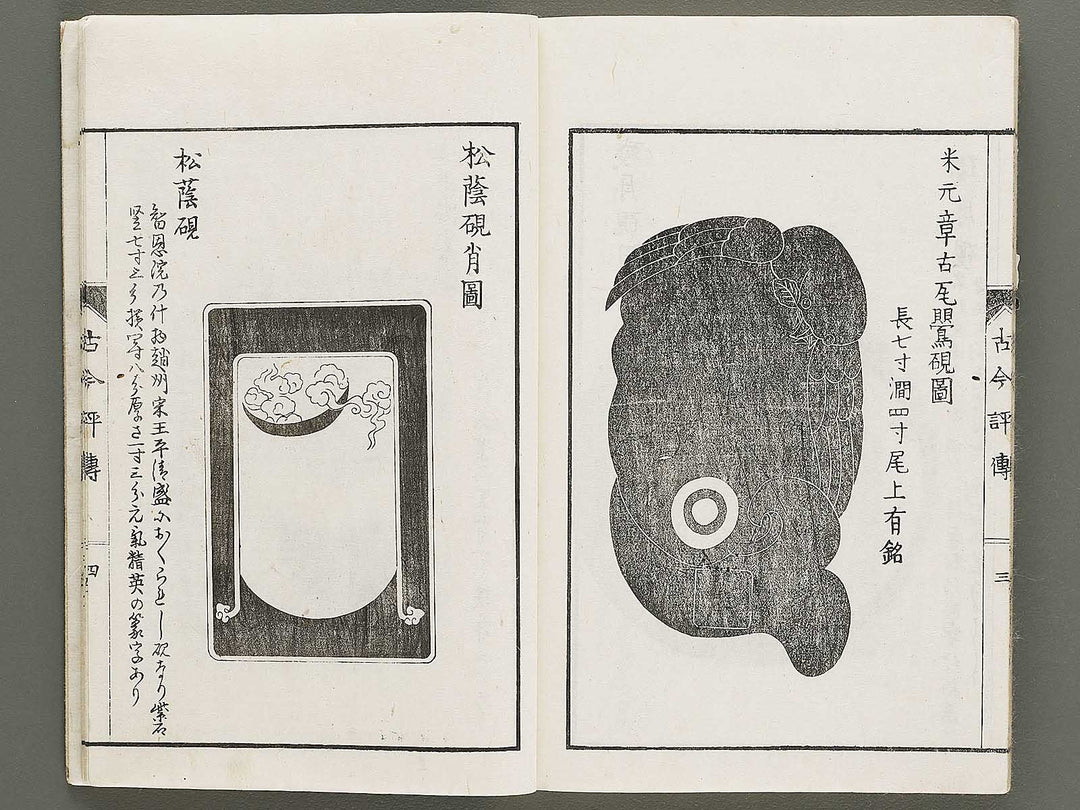 米元章古瓦鸎硯圖
長七寸濶四寸尾上有銘
古今評傳
三
松蔭硯肖圖
松蔭硯
智恩院乃什物趙州宋王平清盛におくられし硯なり紫石
竪七寸三分横四寸八分厚さ一寸三分元氣精英の篆字あり
古今評傳
四